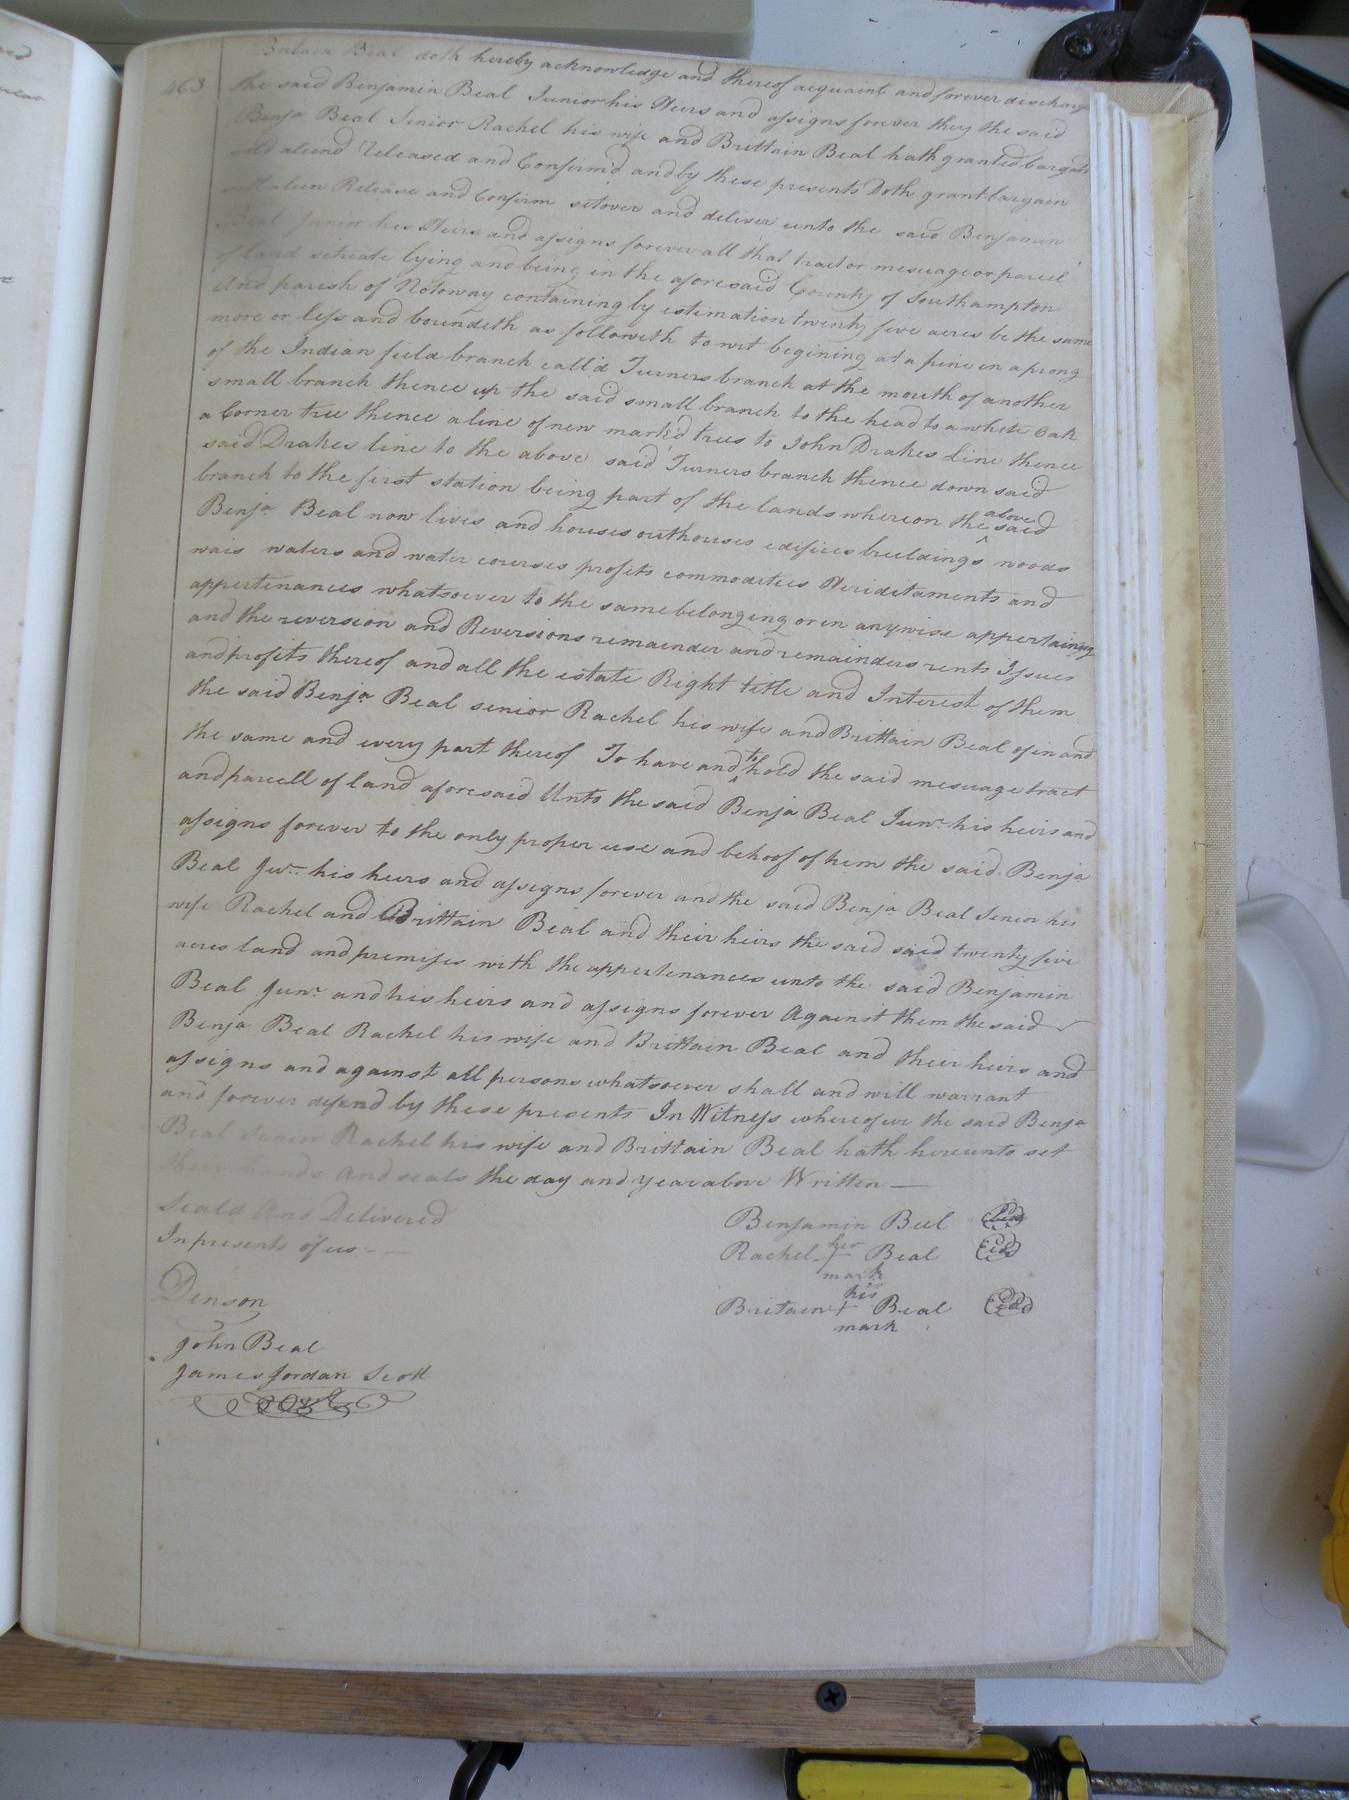 463
Beal doth hereby acknowledge and thereof acquaint and forever discharge
the said Benjamin Beal Junior his Heirs and assigns forever they the said
Benja Beal Senior Rachel his wife and Brittain Beal hath granted bargain
sold aliend Released and Confirm'd and by these presents Doth grant bargain
sell alien Release and Confirm setover and deliver unto the said Benjamin
Beal Junior his Heirs and assigns forever all that tract or mesuage or parcel
of land scituate lying and being in the aforesaid County of Southampton
And parish of Notoway containing by estimation twenty five acres be the same
more or less and boundeth as followeth to wit begining at a pine in a prong
of the Indian field branch call'd Turners branch at the mouth of another
small branch thence up the said small branch to the head to a white Oak
a Corner tree thence a line of new mark'd trees to John Drakes Line thence
said Drakes line to the above said Turners branch thence down said
branch to the first station being part of the lands whereon the above said
Benja Beal now lives and houses outhouses edifices buildings woods
wais waters and water courses profits commodities Heriditaments and
appertenances whatsoever to the same belonging or in anywise appertaining
and the reversion and Reversions remainder and remainders rents Issues
and profits thereof and all the estate Right title and Interest of them
the said Benja Beal senior Rachel his wife and Brittain Beal of in and
the same and every part thereof To have and to hold the said mesuage tract
and parcell of land aforesaid Unto the said Benja Beal Junr his heirs and
assigns forever to the only proper use and behoof of him the said Benja
Beal Jur his heirs and assigns forever and the said Benja Beal Senior his
wife Rachel and Brittain Beal and their heirs the said said twenty five
acres land and premises with the appertenances unto the said Benjamin
Beal Junr and his heirs and assigns forever Against them the said
Benja Beal Rachel his wife and Brittain Beal and their heirs and
assigns and against all persons whatsoever shall and will warrant
and forever defend by these presents In Witness whereof we the said Benja
Beal Senior Rachel his wife and Brittain Beal hath hereunto set
their hands And seals the day and year above Written —
Seald And Delivered
In presents of us —
Benjamin Beel
Rachel her Beal
mark
his
Britain + Beal
mark
Denson
John Beal
James Jordan Scott